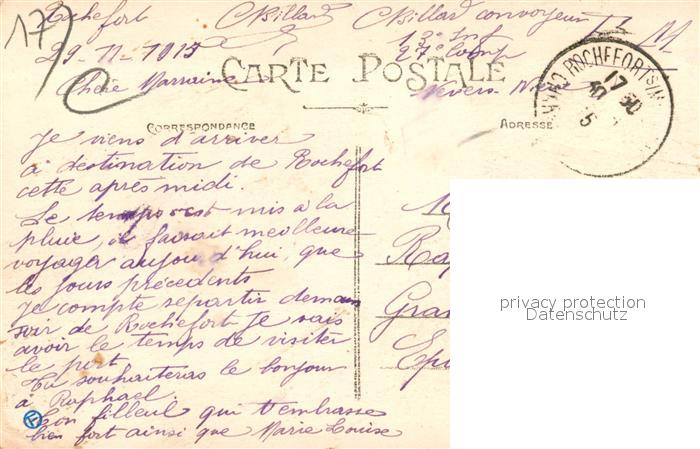 17
Rochefort CBillard CBillard convoyeur
29-11-1915 13e Inf
27e Comp
Chère Marraine Nevers Nièvre
CARTE POSTALE
CORRESPONDANCE ADRESSE
ROCHEFORT S/M
17 30
5
Je viens d'arriver
à destination de Rochefort
cette après midi.
Le temps s'est mis à la
pluie, il faisait meilleure
voyager aujourd'hui, que
les jours précédents
Je compte repartir demain
soir de Rochefort Je vais
avoir le temps de visiter
le port
Tu souhaiteras le bonjour
à Raphael.
Ton filleul qui t'embrasse
bien fort ainsi que Marie Louise
privacy protection
Datenschutz